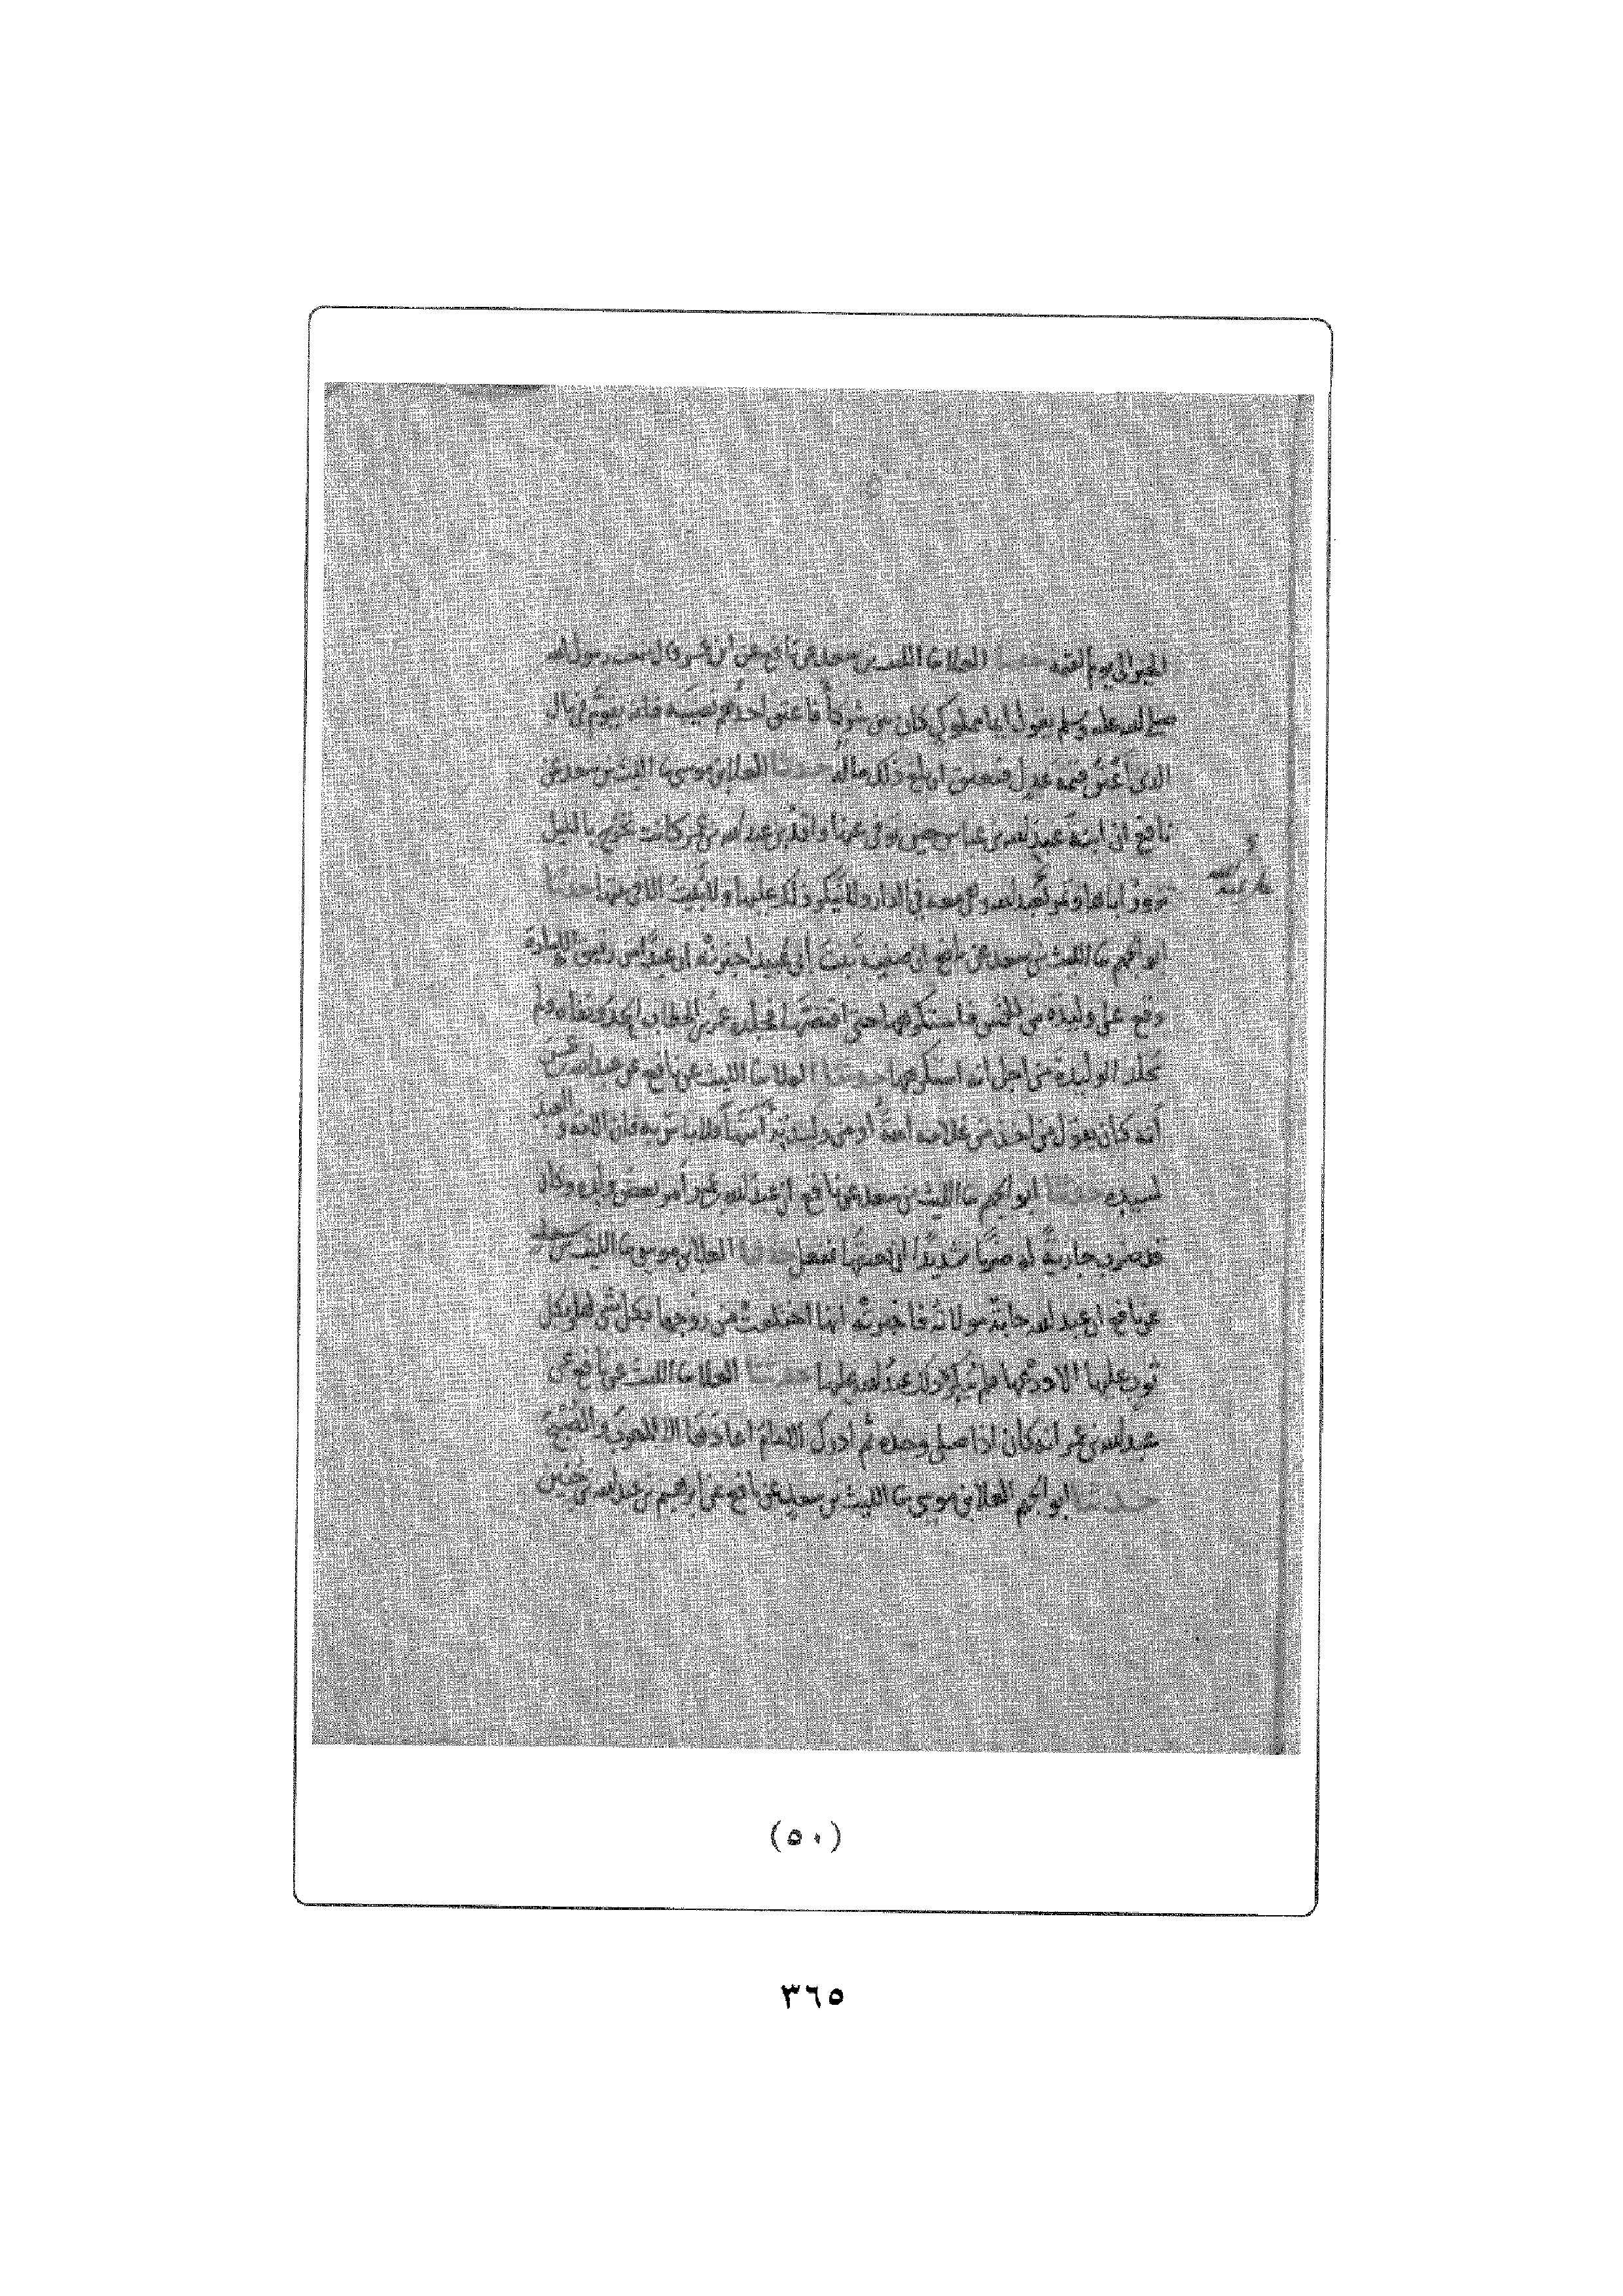 الخير الى يوم القيمه حدثنا العلا ثنا الليث بن سعد عن نافع عن ابن عمر قال سمعت رسول الله
صلى الله عليه وسلم يقول ايما مملوك كان بين شركاء فاعتق احدهم نصيبه فانه يقوم في مال
الذي اعتق قيمة عدل فيعتق ان بلغ ذلك ماله حدثنا العلا بن موسى ثنا الليث بن سعد عن
نافع ان ابنة عبد الله بن عياش حين توفي عنها واقد بن عبد الله بن عمر كانت تخرج بالليل
تزور اباها وتمر بعبد الله وهي معه في الدار ولا ينكر ذلك عليها ولا تبيت الا في بيتها حدثنا
ابو الجهم ثنا الليث بن سعد عن نافع ان صفية بنت أبي عبيد اخبرته ان عبدا من رقيق الامارة
وقع على وليدة من الخمس فاستكرهها حتى اقتضها فجلده عمر بن الخطاب الحد ونفاه ولم
يجلد الوليدة من اجل انه استكرهها حدثنا العلا ثنا الليث عن نافع عن عبد الله بن عمر
أنه كان يقول من اخذ من غلامه او من وليدته فلا باس به فان الامة والعبد
لسيده حدثنا ابو الجهم ثنا الليث بن سعد عن نافع ان عبد الله بن عمر امر بعض ولده وكان
قد ضرب جارية له ضربا شديدا ان يعتقها ففعل حدثنا العلا بن موسى ثنا الليث بن سعد
عن نافع ان عبد الله جاته مولاة فاخبرته انها اختلعت من زوجها بكل شي لها وبكل
ثوب عليها الا درعها فلم ينكر ذلك عبد الله عليها حدثنا العلا ثنا الليث عن نافع عن
عبد الله بن عمر انه كان اذا صلى وحده ثم ادرك الامام اعاد معه الا المغرب والصبح
حدثنا ابو الجهم العلا بن موسى ثنا الليث بن سعد عن نافع عن ابرهيم بن عبد الله بن حنين
(٥٠)
٣٦٥